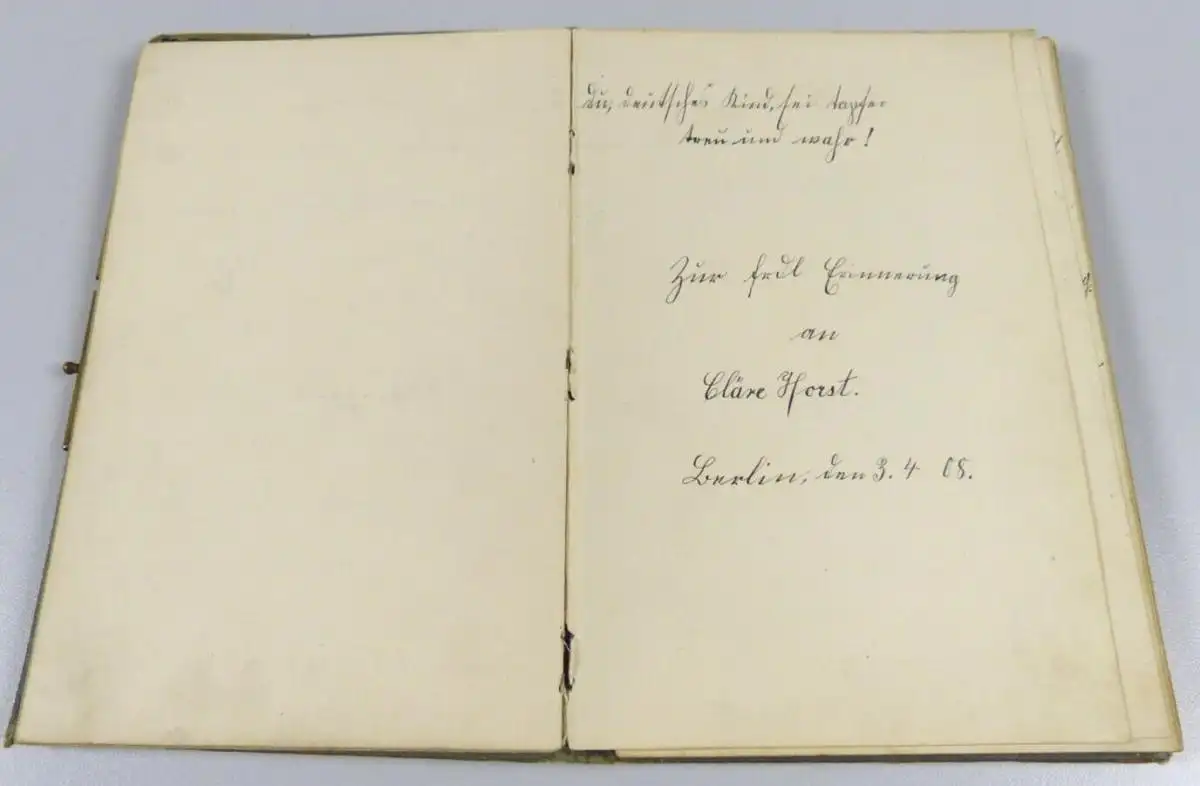 Du, deutsches Kind, sei tapfer
treu und wahr!
Zur frdl Erinnerung
an
Cläre Horst.
Berlin, den 3. 4 08.